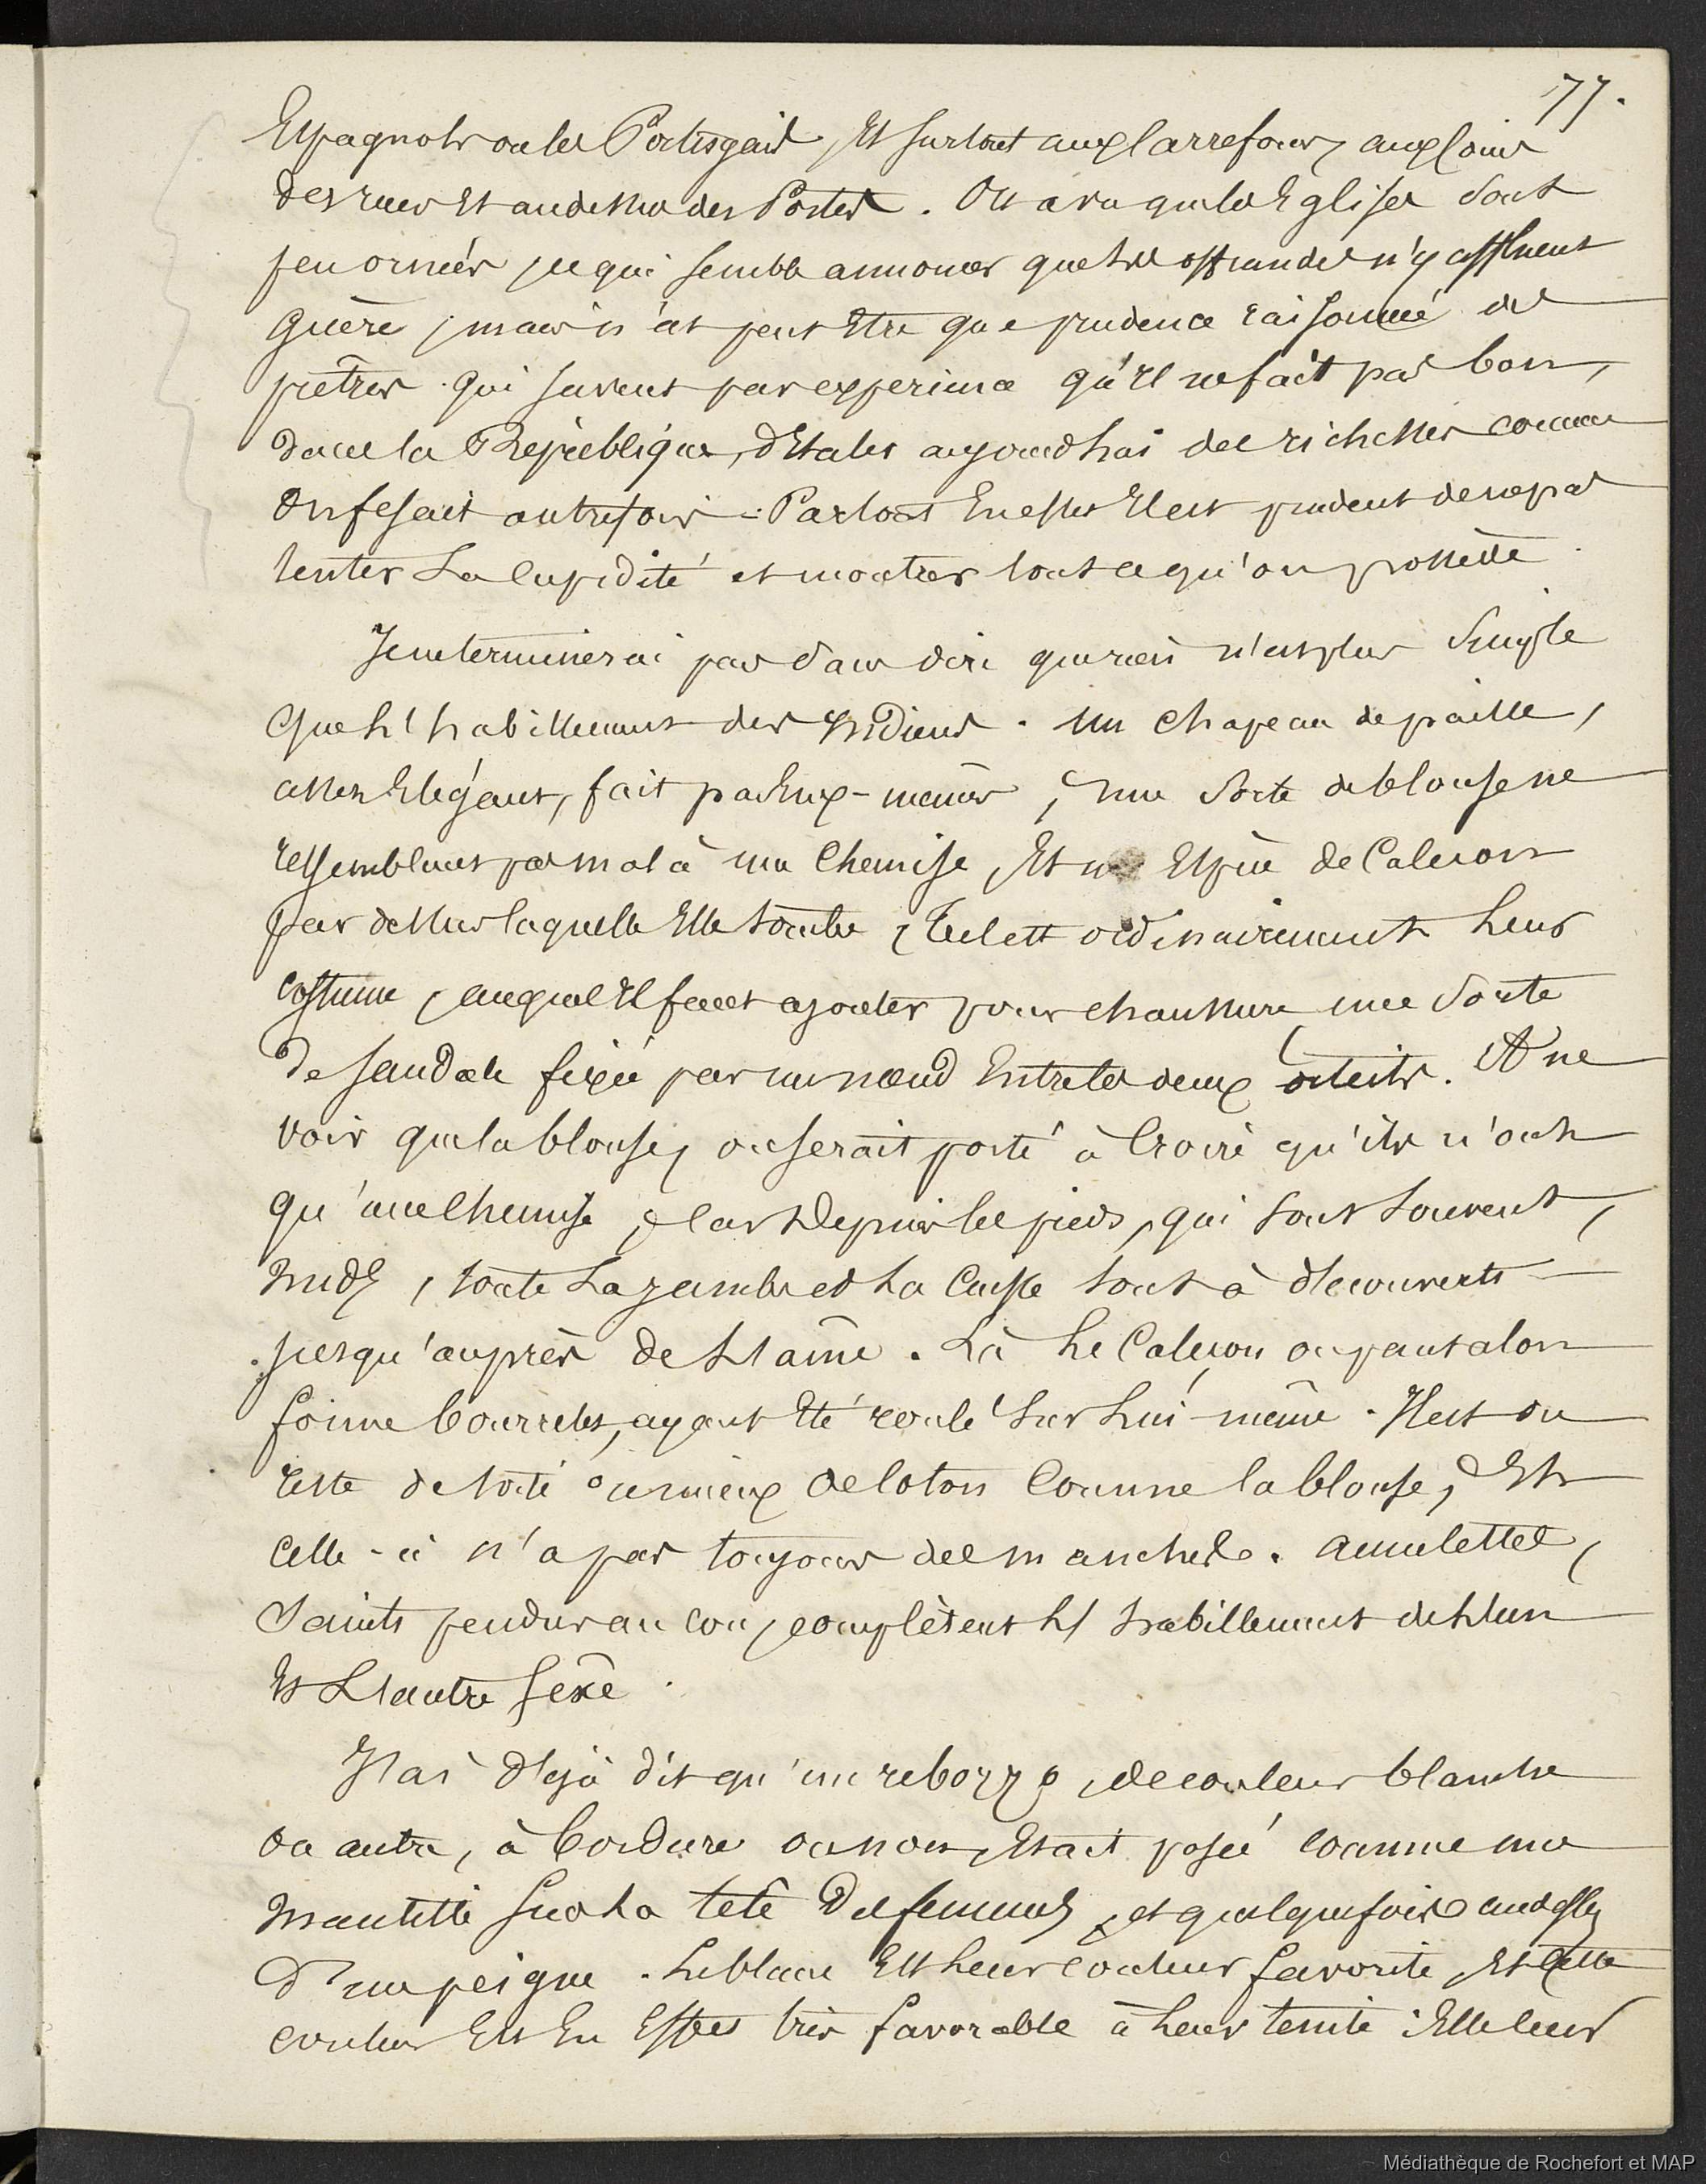 77.
Espagnols ou les Portugais, et surtout aux carrefours, aux coins
des rues et au dessus des Portes. On a vu que les Eglises sont
peu ornées, ce qui semble annoncer que les offrandes n'y affluent
guère ; mais n'est peut être que prudence raisonnée de
prêtres qui savent par experience qu'il ne fait pas bon,
dans la République, d'étaler aujourd'hui des richesses comme
on fesait autrefois. Partout En effet Il est prudent de ne pas
tenter La Cupidité et montrer tout ce qu'on possède.
Je ne terminerai pas sans dire que rien n'est plus simple
que l'habillement des Indiens. Un chapeau de paille,
assez Elégant, fait par Eux-mêmes ; Une sorte de blouse ne
ressemblant pas mal à une Chemise, Et une Espèce de Caleçon
par dessus laquelle Elle tombe ; tel est ordinairement Leur
costume, auquel Il faut ajouter pour chaussure une sorte
de sandale fixée par un nœud Entre les deux orteils. A ne
voir que la blouse, on serait porté à Croire qu'ils n'ont
qu'une Chemise ; Car Depuis les pieds, qui sont souvent
nuds, toute La jambe et La Cuisse sont à découvert
jusqu'auprès de L'aîne. Là Le Caleçon ou pantalon
forme bourrelet, ayant Eté roulé sur Lui-même. Il est du
reste de toile ou mieux de Coton Comme la blouse, Et
celle-ci n'a pas toujours des manches. Amulettes,
Saints pendus au cou, complètent L'habillement de L'un
Et L'autre Sexe.
J'ai déjà dit qu'un rebozzo, de couleur blanche
ou autre, à bordure ou non, Etait posé comme une
mantille sur La tête Des femmes, et quelquefois au dessus
d'un peigne. Le blanc Est Leur Couleur favorite, Et cette
couleur Est En Effet très favorable à Leur teinte : Elle leur
Médiathèque de Rochefort et MAP